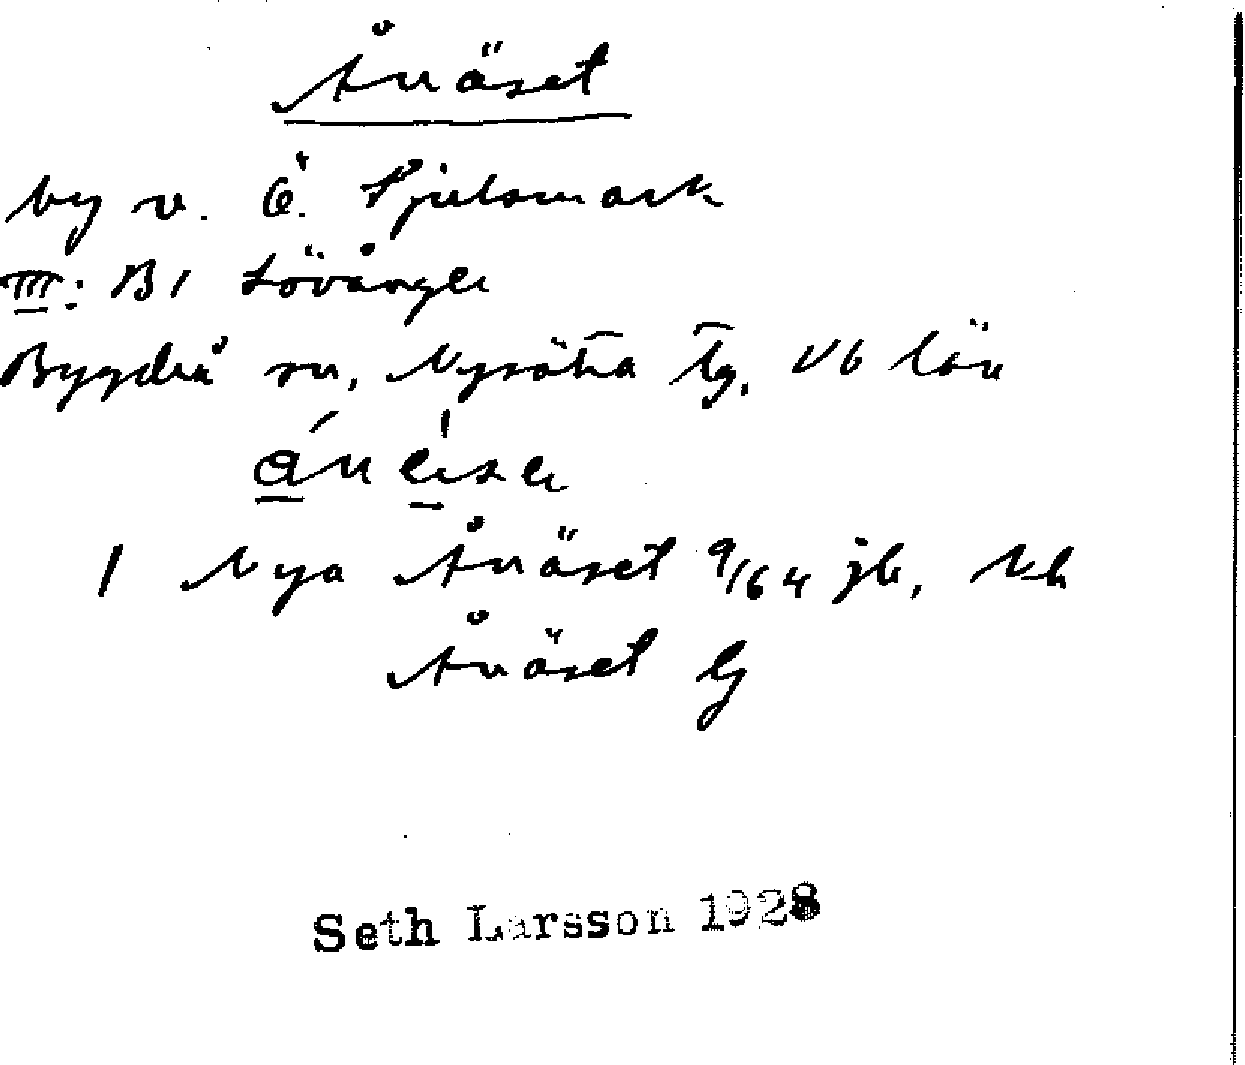 Ånäset
by v. Ö. Hjulsmark
III: B1 Lövånger
Bygdeå sn, Nysätra tg, Vb län
1 Nya Ånäset 9/64 jb,
Ånäset G
Seth Larsson 1928